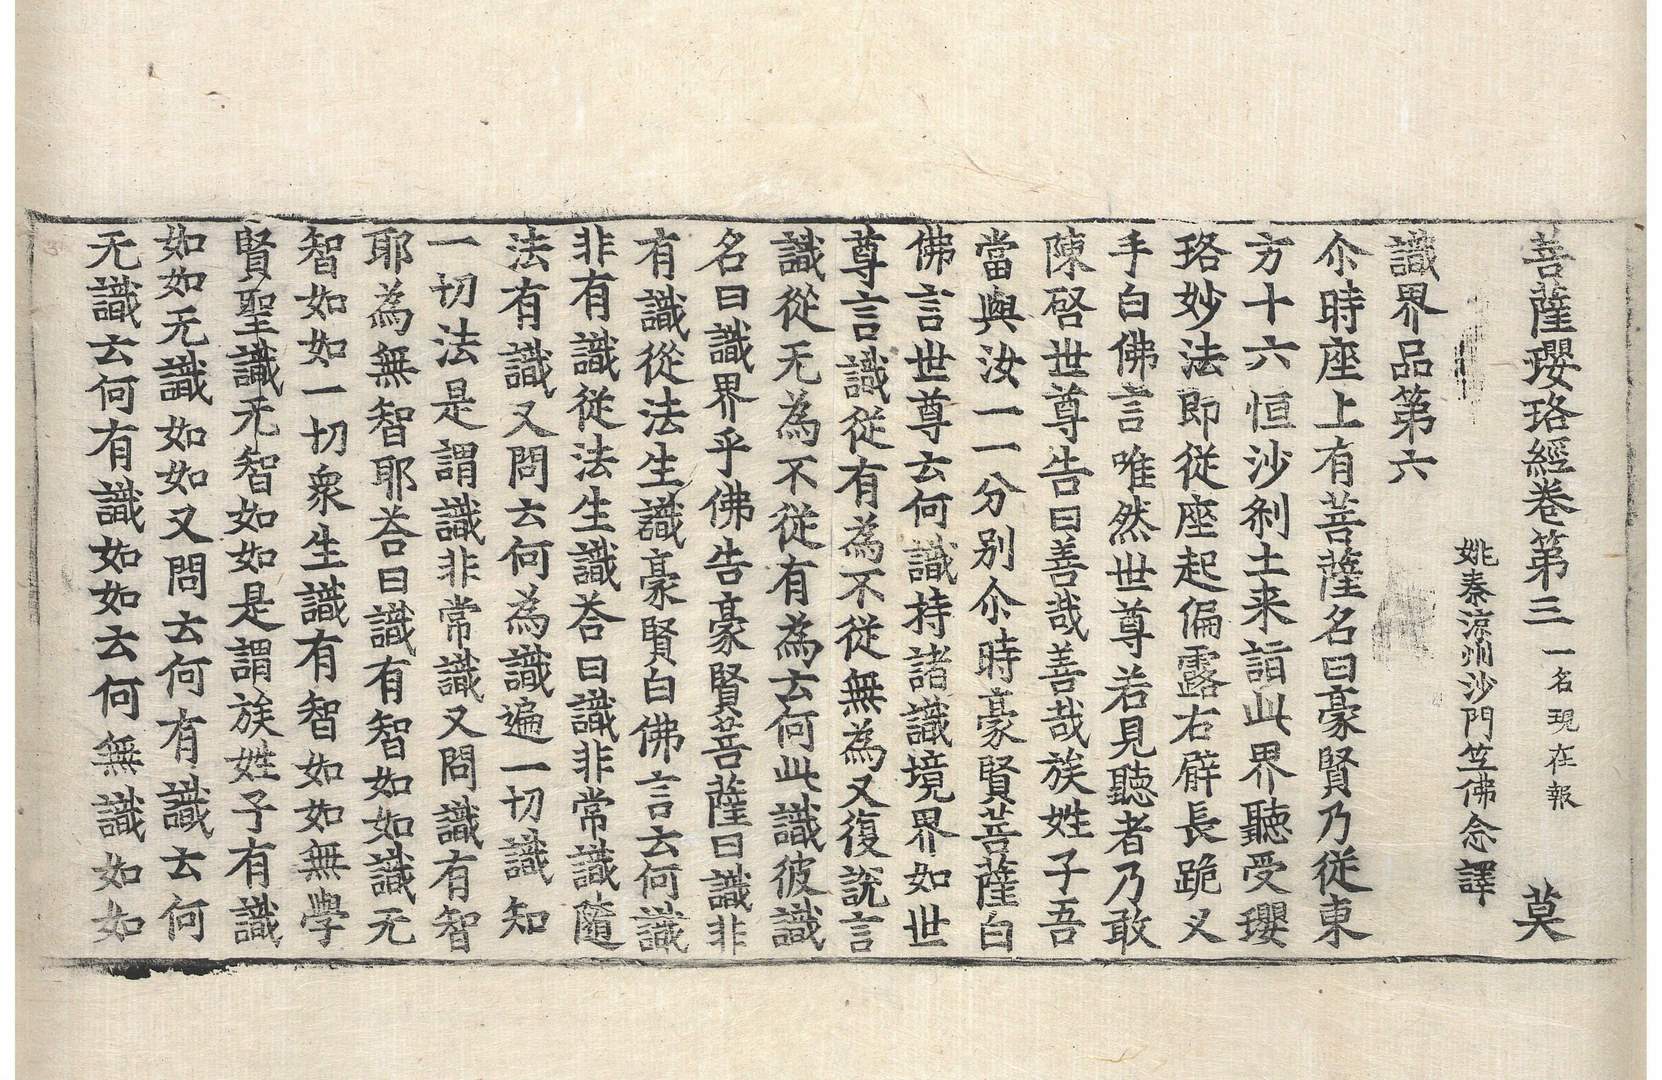 菩薩瓔珞經卷第三 一名現在報 莫
姚秦涼州沙門笁佛念譯
識界品第六
尒時座上有菩薩名曰豪賢乃從東
方十六恒沙刹土来詣此界聽受瓔
珞妙法即從座起偏露右臂長跪叉
手白佛言唯然世尊若見聽者乃敢
陳啓世尊告曰善哉善哉族姓子吾
當與汝一一分別尒時豪賢菩薩白
佛言世尊云何識持諸識境界如世
尊言識從有為不從無為又復說言
識從无為不從有為云何此識彼識
名曰識界乎佛告豪賢菩薩曰識非
有識從法生識豪賢白佛言云何識
非有識從法生識荅曰識非常識隨
法有識又問云何為識遍一切識知
一切法是謂識非常識又問識有智
耶為無智耶荅曰識有智如如識无
智如如一切衆生識有智如如無學
賢聖識无智如如是謂族姓子有識
如如无識如如又問云何有識云何
无識云何有識如如云何無識如如